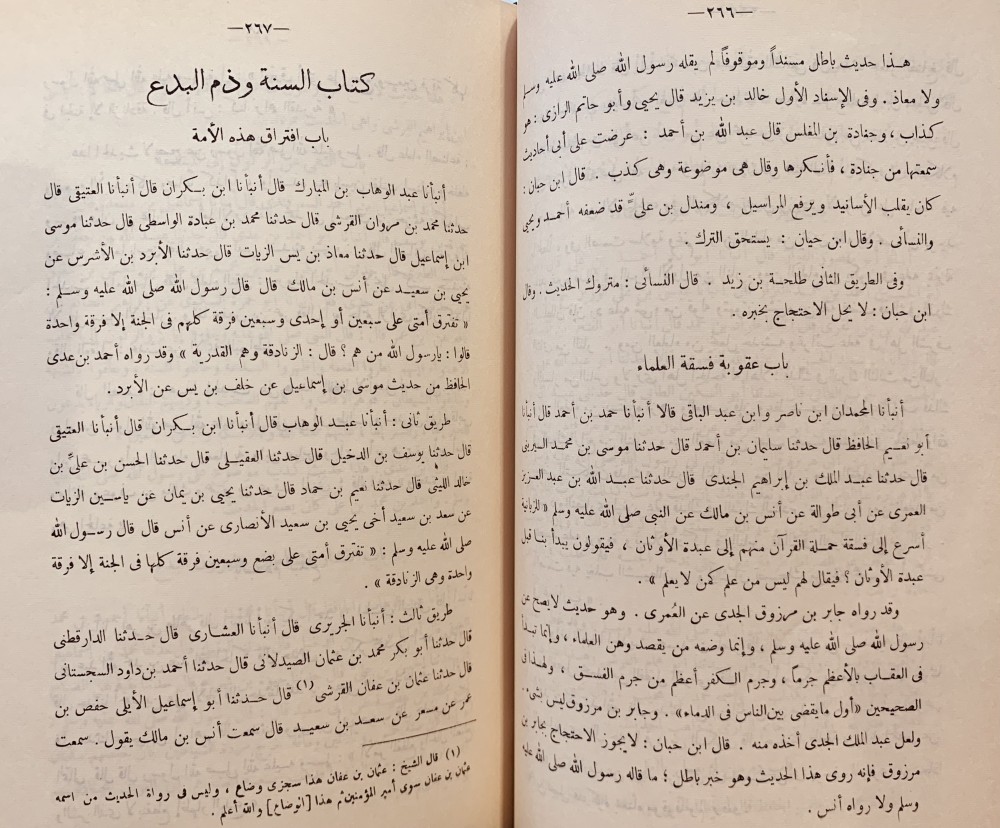 —٢٦٦—
هذا حديث باطل مسنداً وموقوفاً لم يقله رسول الله صلى الله عليه وسلم
ولا معاذ . وفى الإسناد الأول خالد بن يزيد قال يحيى وأبو حاتم الرازى : هو
كذاب ، وجنادة بن المغلس قال عبد الله بن أحمد : عرضت على أبى أحاديث
سمعتها من جنادة ، فأنكرها وقال هى موضوعة وهى كذب . قال ابن حبان :
كان يقلب الأسانيد ويرفع المراسيل ، ومندل بن علىّ قد ضعفه أحمد ويحيى
والنسائى . وقال ابن حيان : يستحق الترك .
وفى الطريق الثانى طلحة بن زيد . قال النسائى : متروك الحديث . وقال
ابن حبان : لا يحل الاحتجاج بخبره .
باب عقوبة فسقة العلماء
أنبأنا المحمدان ابن ناصر وابن عبد الباقى قالا أنبأنا حمد بن أحمد قال أنبأنا
أبو نعيم الحافظ قال حدثنا سليمان بن أحمد قال حدثنا موسى بن محمد
قال حدثنا عبد الملك بن إبراهيم الجندى قال حدثنا عبد الله بن عبد العزيز
العمرى عن أبى طوالة عن أنس بن مالك عن النبى صلى الله عليه وسلم « للزبانية
أسرع إلى فسقة حملة القرآن منهم إلى عبدة الأوثان ، فيقولون يبدأ بنا قبل
عبدة الأوثان ؟ فيقال لهم ليس من علم كمن لا يعلم » .
وقد رواه جابر بن مرزوق الجدى عن العُمرى . وهو حديث لا يصح عن
رسول الله صلى الله عليه وسلم ، وإنما وضعه من يقصد وهن العلماء ، وإنما يبدأ
فى العقاب بالأعظم جرماً ، وجرم الكفر أعظم من جرم الفسق ، ولهذا فى
الصحيحين «أول ما يقضى بين الناس فى الدماء» . وجابر بن مرزوق ليس بشىء .
ولعل عبد الملك الجدى أخذه منه . قال ابن حبان : لا يجوز الاحتجاج بجابر بن
مرزوق فإنه روى هذا الحديث وهو خبر باطل ؛ ما قاله رسول الله صلى الله عليه
وسلم ولا رواه أنس .
—٢٦٧—
كتاب السنة وذم البدع
باب افتراق هذه الأمة
أنبأنا عبد الوهاب بن المبارك قال أنبأنا ابن بكران قال أنبأنا العتيقى قال
حدثنا محمد بن مروان القرشى قال حدثنا محمد بن عبادة الواسطى قال حدثنا موسى
ابن إسماعيل قال حدثنا معاذ بن يس الزيات قال حدثنا الأبرد بن الأشرس عن
يحيى بن سعيد عن أنس بن مالك قال قال رسول الله صلى الله عليه وسلم :
« تفترق أمتى على سبعين أو إحدى وسبعين فرقة كلهم فى الجنة إلا فرقة واحدة
قالوا : يارسول الله من هم ؟ قال : الزنادقة وهم القدرية » وقد رواه أحمد بن عدى
الحافظ من حديث موسى بن إسماعيل عن خلف بن يس عن الأبرد .
طريق ثانى : أنبأنا عبد الوهاب قال أنبأنا ابن بكران قال أنبأنا العتيقى
قال حدثنا يوسف بن الدخيل قال حدثنا العقيلى قال حدثنا الحسن بن علىّ بن
خالد الليثى قال حدثنا نعيم بن حماد قال حدثنا يحيى بن يمان عن ياسين الزيات
عن سعد بن سعيد أخى يحيى بن سعيد الأنصارى عن أنس قال قال رسول الله
صلى الله عليه وسلم : « تفترق أمتى على بضع وسبعين فرقة كلها فى الجنة إلا فرقة
واحدة وهى الزنادقة » .
طريق ثالث : أنبأنا الجريرى قال أنبأنا العشارى قال حدثنا الدارقطنى
قال حدثنا أبو بكر محمد بن عثمان الصيدلانى قال حدثنا أحمد بن داود السجستانى
قال حدثنا عثمان بن عفان القرشى (١) قال حدثنا أبو إسماعيل الأيلى حفص بن
عمر عن مسعر عن سعد بن سعيد قال سمعت أنس بن مالك يقول . سمعت
(١) قال الشيخ : عثمان بن عفان هذا سجزى وضاع ، وليس فى رواة الحديث من اسمه
عثمان بن عفان سوى أمير المؤمنين ثم هذا [الوضاع] والله أعلم .